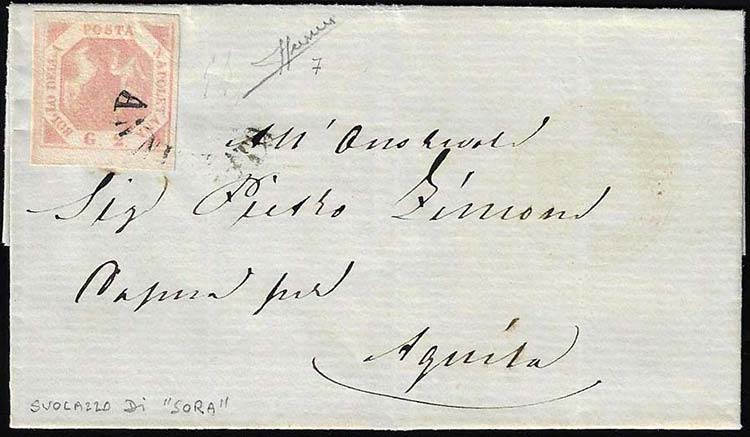 BOLLO DELLA
POSTA
NAPOLETANA
G 2
7
All'
Sig Pietro
Capua per
Aquila
SVOLAZZO DI "SORA"